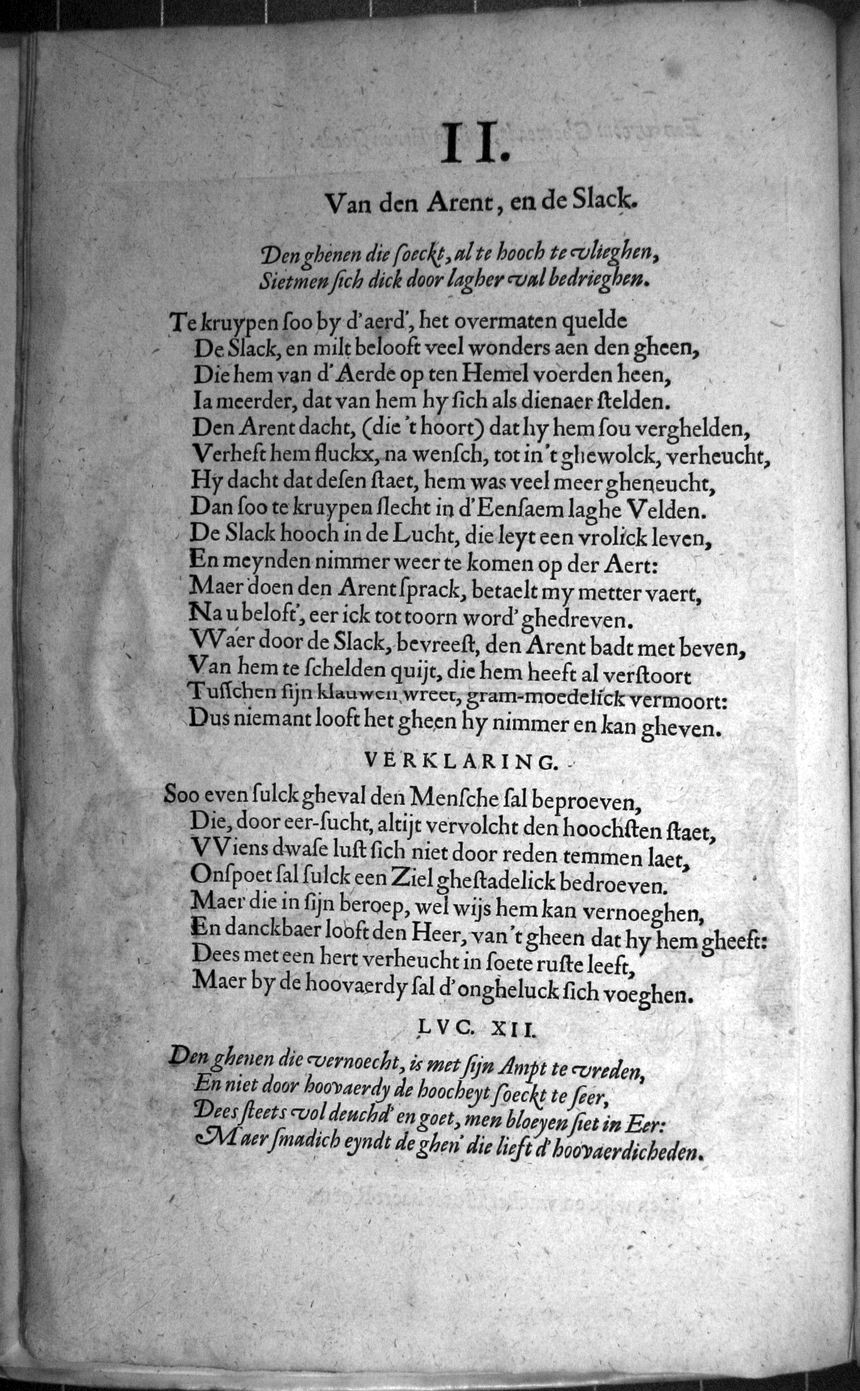 II.
Van den Arent, en de Slack.
Den ghenen die ſoeckt, al te hooch te vlieghen,
Sietmen ſich dick door lagher val bedrieghen.
Te kruypen ſoo by d'aerd', het overmaten quelde
De Slack, en milt belooft veel wonders aen den gheen,
Die hem van d'Aerde op ten Hemel voerden heen,
Ia meerder, dat van hem hy ſich als dienaer ſtelden.
Den Arent dacht, (die 't hoort) dat hy hem ſou verghelden,
Verheft hem fluckx, na wenſch, tot in 't ghewolck, verheucht,
Hy dacht dat deſen ſtaet, hem was veel meer gheneucht,
Dan ſoo te kruypen ſlecht in d'Eenſaem laghe Velden.
De Slack hooch in de Lucht, die leyt een vrolick leven,
En meynden nimmer weer te komen op der Aert:
Maer doen den Arent ſprack, betaelt my metter vaert,
Na u beloft', eer ick tot toorn word' ghedreven.
VVaer door de Slack, bevreeſt, den Arent badt met beven,
Van hem te ſchelden quijt, die hem heeft al verſtoort
Tuſſchen ſijn klauwen wreet, gram-moedelick vermoort:
Dus niemant looft het gheen hy nimmer en kan gheven.
VERKLARING.
Soo even ſulck gheval den Menſche ſal beproeven,
Die, door eer-ſucht, altijt vervolcht den hoochſten ſtaet,
VViens dwaſe luſt ſich niet door reden temmen laet,
Onſpoet ſal ſulck een Ziel gheſtadelick bedroeven.
Maer die in ſijn beroep, wel wijs hem kan vernoeghen,
En danckbaer looft den Heer, van 't gheen dat hy hem gheeft:
Dees met een hert verheucht in ſoete ruſte leeft,
Maer by de hoovaerdy ſal d'ongheluck ſich voeghen.
LVC. XII.
Den ghenen die vernoecht, is met ſijn Ampt te vreden,
En niet door hoovaerdy de hoocheyt ſoeckt te ſeer,
Dees ſteets vol deuchd' en goet, men bloeyen ſiet in Eer:
Maer ſmadich eyndt de ghen' die lieft d'hoovaerdicheden.